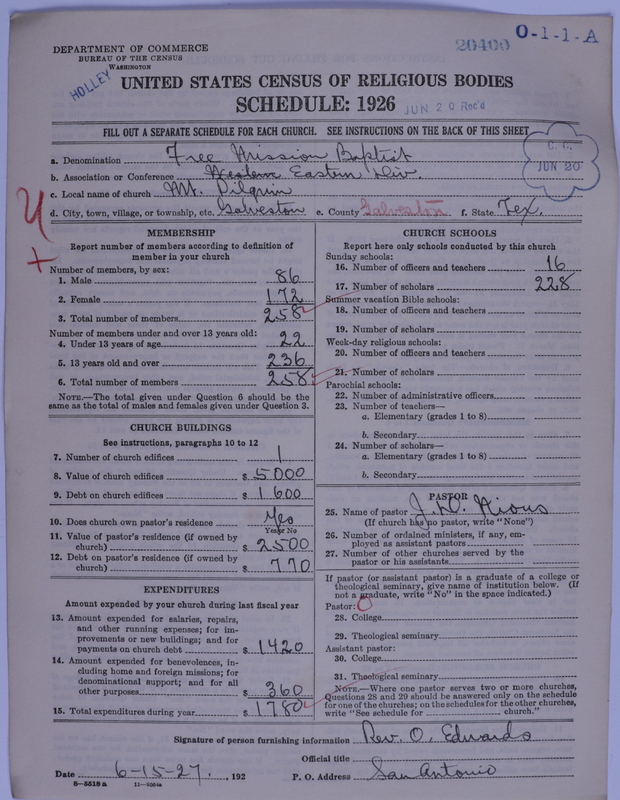 DEPARTMENT OF COMMERCE
BUREAU OF THE CENSUS
WASHINGTON
HOLLEY
20400
O-1-1-A
UNITED STATES CENSUS OF RELIGIOUS BODIES
SCHEDULE: 1926
JUN 20 Rec'd
FILL OUT A SEPARATE SCHEDULE FOR EACH CHURCH. SEE INSTRUCTIONS ON THE BACK OF THIS SHEET
C. C.
JUN 20
a. Denomination Free Mission Baptist
b. Association or Conference Western Eastern Div.
c. Local name of church Mt. Pilgrim
d. City, town, village, or township, etc. Galveston e. County Galveston f. State Tex.
MEMBERSHIP
Report number of members according to definition of
member in your church
Number of members, by sex:
1. Male 86
2. Female 172
3. Total number of members 258
Number of members under and over 13 years old:
4. Under 13 years of age 22
5. 13 years old and over 236
6. Total number of members 258
NOTE.—The total given under Question 6 should be the
same as the total of males and females given under Question 3.
CHURCH BUILDINGS
See instructions, paragraphs 10 to 12
7. Number of church edifices 1
8. Value of church edifices $ 5000
9. Debt on church edifices $ 1600
10. Does church own pastor's residence Yes
Yes or No
11. Value of pastor's residence (if owned by
church) $ 2500
12. Debt on pastor's residence (if owned by
church) $ 770
EXPENDITURES
Amount expended by your church during last fiscal year
13. Amount expended for salaries, repairs,
and other running expenses; for im-
provements or new buildings; and for
payments on church debt $ 1420
14. Amount expended for benevolences, in-
cluding home and foreign missions; for
denominational support; and for all
other purposes $ 360
15. Total expenditures during year $ 1780
CHURCH SCHOOLS
Report here only schools conducted by this church
Sunday schools:
16. Number of officers and teachers 16
17. Number of scholars 228
Summer vacation Bible schools:
18. Number of officers and teachers
19. Number of scholars
Week-day religious schools:
20. Number of officers and teachers
21. Number of scholars
Parochial schools:
22. Number of administrative officers
23. Number of teachers—
a. Elementary (grades 1 to 8)
b. Secondary
24. Number of scholars—
a. Elementary (grades 1 to 8)
b. Secondary
PASTOR
25. Name of pastor J. D.
(If church has no pastor, write "None")
26. Number of ordained ministers, if any, em-
ployed as assistant pastors
27. Number of other churches served by the
pastor or his assistants
If pastor (or assistant pastor) is a graduate of a college or
theological seminary, give name of institution below. (If
not a graduate, write "No" in the space indicated.)
Pastor:
28. College
29. Theological seminary
Assistant pastor:
30. College
31. Theological seminary
NOTE.—Where one pastor serves two or more churches,
Questions 28 and 29 should be answered only on the schedule
for one of the churches; on the schedules for the other churches,
write "See schedule for church."
Signature of person furnishing information Rev. O. Edwards
Official title
Date 6-15-27., 192 P. O. Address San Antonio